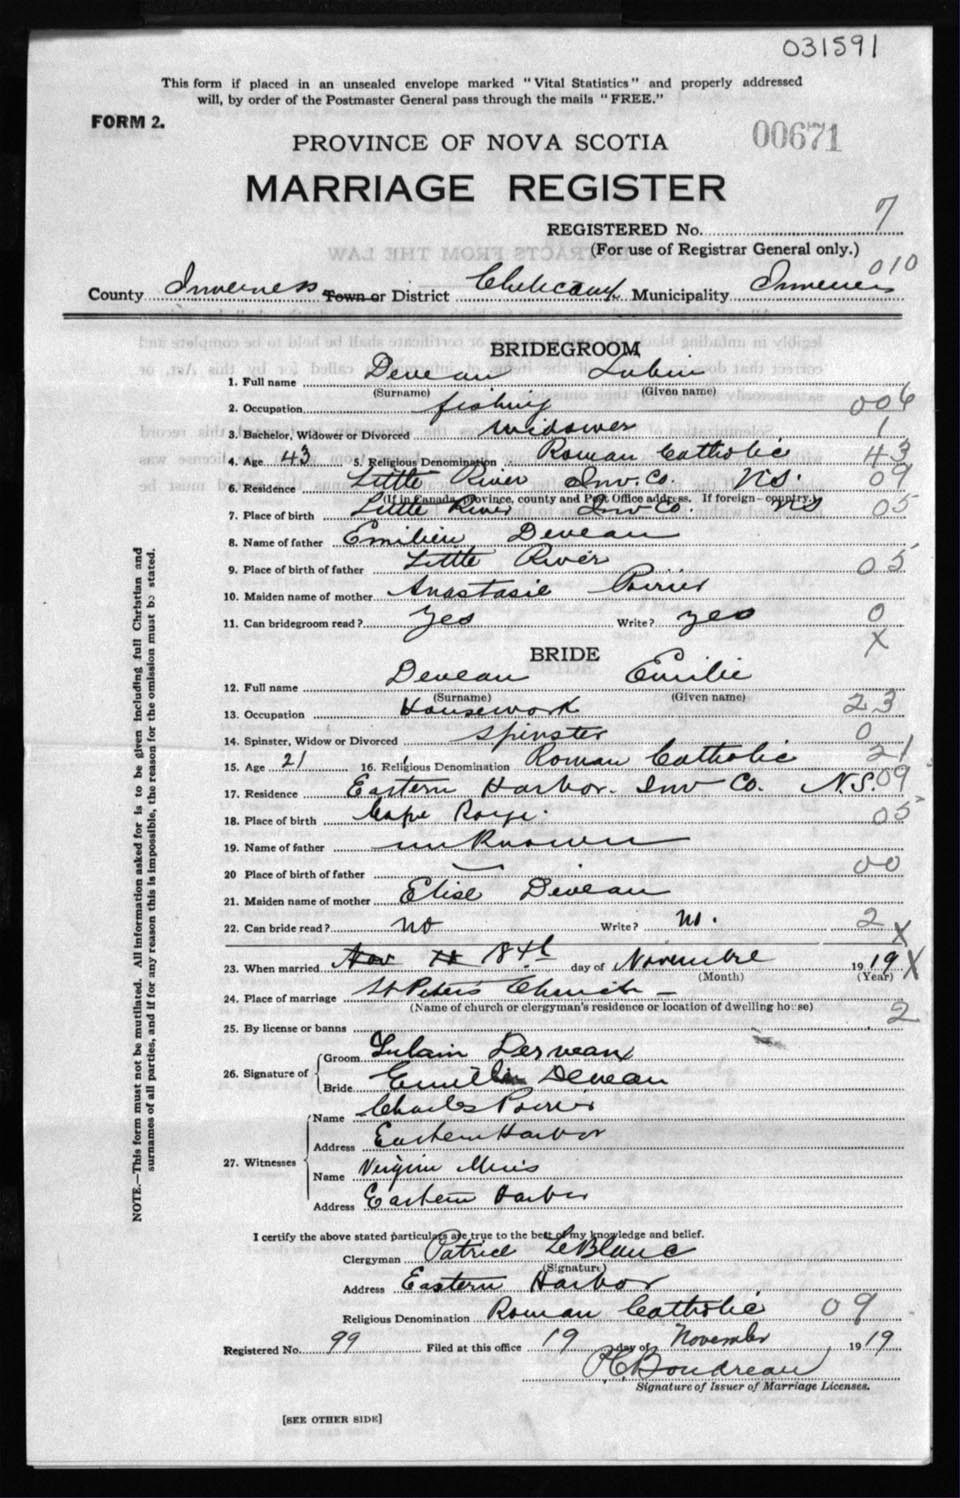 031591
This form if placed in an unsealed envelope marked "Vital Statistics" and properly addressed
will, by order of the Postmaster General pass through the mails "FREE."
FORM 2.
PROVINCE OF NOVA SCOTIA
00671
MARRIAGE REGISTER
REGISTERED No. 7
(For use of Registrar General only.)
010
County Inverness Town or District Cheticamp Municipality Inverness
BRIDEGROOM
1. Full name Deveau Lubin
(Surname) (Given name)
2. Occupation fishing 006
3. Bachelor, Widower or Divorced widower 1
4. Age 43 5. Religious Denomination Roman Catholic 43
6. Residence Little River Inv. Co. N.S. 09
(If in Canada, province, county and Post Office address. If foreign—country.)
7. Place of birth Little River Inv Co. NS 05
8. Name of father Emilien Deveau
9. Place of birth of father Little River 05
10. Maiden name of mother Anastasie Poirier
11. Can bridegroom read? Yes Write? yes 0
X
BRIDE
12. Full name Deveau Emilie
(Surname) (Given name)
13. Occupation Housework 23
14. Spinster, Widow or Divorced spinster 0
15. Age 21 16. Religious Denomination Roman Catholic 21
17. Residence Eastern Harbor. Inv Co. N.S. 09
18. Place of birth Cape Rouge. 05
19. Name of father unknown
20 Place of birth of father — 00
21. Maiden name of mother Elise Deveau
22. Can bride read? no Write? no. 2 X
23. When married Nov 18th day of Novembre 1919 X
(Month) (Year)
24. Place of marriage St Peters Church —
(Name of church or clergyman's residence or location of dwelling house) 2
25. By license or banns
26. Signature of
Groom Lubain Derveau
Bride Emilie Deveau
27. Witnesses
Name Charles Poirier
Address Eastern Harbor
Name Virginie
Address Eastern Harbor
I certify the above stated particulars are true to the best of my knowledge and belief.
Clergyman Patrice LeBlanc
(Signature)
Address Eastern Harbor
Religious Denomination Roman Catholic 09
Registered No. 99 Filed at this office 19 day of November 1919
P.C. Boudreau
Signature of Issuer of Marriage Licenses.
[SEE OTHER SIDE]
NOTE.—This form must not be mutilated. All information asked for is to be given including full Christian and
surnames of all parties, and if for any reason this is impossible, the reason for the omission must be stated.